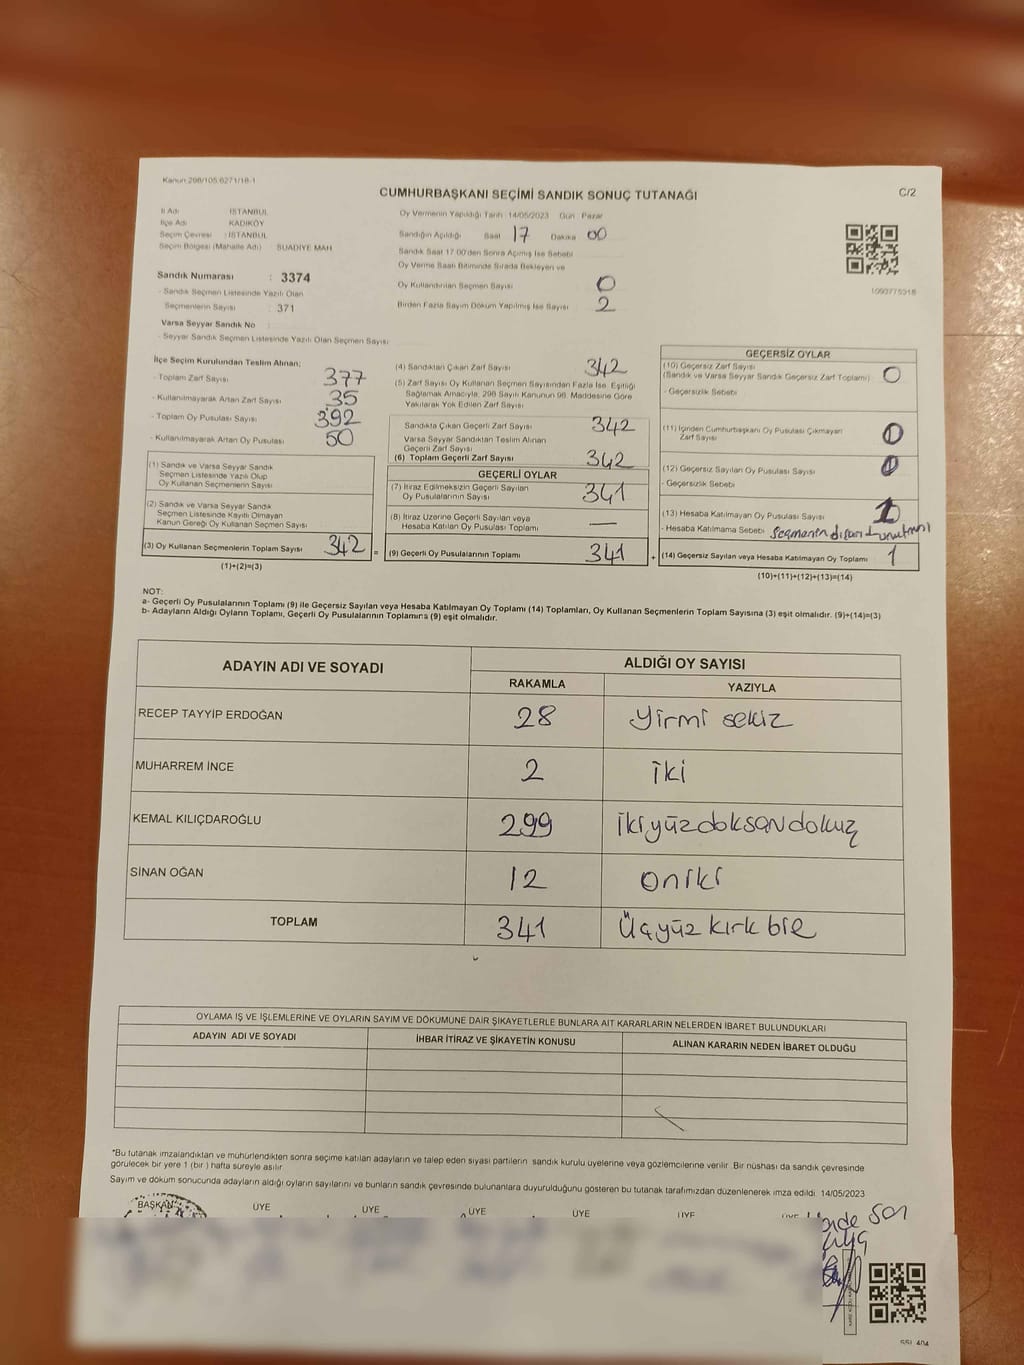 Kanun 298/105,6271/18-1
CUMHURBAŞKANI SEÇİMİ SANDIK SONUÇ TUTANAĞI
C/2
İli Adı İSTANBUL
İlçe Adı KADIKÖY
Seçim Çevresi : İSTANBUL
Seçim Bölgesi (Mahalle Adı) SUADİYE MAH.
Oy Vermenin Yapıldığı Tarih 14/05/2023 Gün Pazar
Sandığın Açıldığı Saat 17 Dakika 00
Sandık Saat 17.00'den Sonra Açılmış İse Sebebi
Oy Verme Saati Bitiminde Sırada Bekleyen ve
Oy Kullandırılan Seçmen Sayısı 0
Birden Fazla Sayım Döküm Yapılmış İse Sayısı 2
Sandık Numarası : 3374
- Sandık Seçmen Listesinde Yazılı Olan
Seçmenlerin Sayısı : 371
Varsa Seyyar Sandık No
- Seyyar Sandık Seçmen Listesinde Yazılı Olan Seçmen Sayısı
İlçe Seçim Kurulundan Teslim Alınan;
- Toplam Zarf Sayısı 377
- Kullanılmayarak Artan Zarf Sayısı 35
- Toplam Oy Pusulası Sayısı 392
- Kullanılmayarak Artan Oy Pusulası 50
(1) Sandık ve Varsa Seyyar Sandık
Seçmen Listesinde Yazılı Olup
Oy Kullanan Seçmenlerin Sayısı
(2) Sandık ve Varsa Seyyar Sandık
Seçmen Listesinde Kayıtlı Olmayan
Kanun Gereği Oy Kullanan Seçmen Sayısı
(3) Oy Kullanan Seçmenlerin Toplam Sayısı 342 =
(1)+(2)=(3)
(4) Sandıktan Çıkan Zarf Sayısı 342
(5) Zarf Sayısı Oy Kullanan Seçmen Sayısından Fazla İse, Eşitliği
Sağlamak Amacıyla, 298 Sayılı Kanunun 98. Maddesine Göre
Yakılarak Yok Edilen Zarf Sayısı
Sandıkta Çıkan Geçerli Zarf Sayısı 342
Varsa Seyyar Sandıktan Teslim Alınan
Geçerli Zarf Sayısı
(6) Toplam Geçerli Zarf Sayısı 342
GEÇERLİ OYLAR
(7) İtiraz Edilmeksizin Geçerli Sayılan
Oy Pusulalarının Sayısı 341
(8) İtiraz Üzerine Geçerli Sayılan veya
Hesaba Katılan Oy Pusulası Toplamı —
(9) Geçerli Oy Pusulalarının Toplamı 341 +
GEÇERSİZ OYLAR
(10) Geçersiz Zarf Sayısı
(Sandık ve Varsa Seyyar Sandık Geçersiz Zarf Toplamı) 0
- Geçersizlik Sebebi
(11) İçinden Cumhurbaşkanı Oy Pusulası Çıkmayan
Zarf Sayısı 0
(12) Geçersiz Sayılan Oy Pusulası Sayısı 0
- Geçersizlik Sebebi
(13) Hesaba Katılmayan Oy Pusulası Sayısı 1
- Hesaba Katılmama Sebebi Seçmenin dışarı unutması
(14) Geçersiz Sayılan veya Hesaba Katılmayan Oy Toplamı 1
(10)+(11)+(12)+(13)=(14)
NOT:
a- Geçerli Oy Pusulalarının Toplamı (9) ile Geçersiz Sayılan veya Hesaba Katılmayan Oy Toplamı (14) Toplamları, Oy Kullanan Seçmenlerin Toplam Sayısına (3) eşit olmalıdır. (9)+(14)=(3)
b- Adayların Aldığı Oyların Toplamı, Geçerli Oy Pusulalarının Toplamına (9) eşit olmalıdır.
ADAYIN ADI VE SOYADI ALDIĞI OY SAYISI
RAKAMLA YAZIYLA
RECEP TAYYİP ERDOĞAN 28 yirmi sekiz
MUHARREM İNCE 2 iki
KEMAL KILIÇDAROĞLU 299 ikiyüzdoksandokuz
SİNAN OĞAN 12 oniki
TOPLAM 341 Üçyüz kırk bir
OYLAMA İŞ VE İŞLEMLERİNE VE OYLARIN SAYIM VE DÖKÜMÜNE DAİR ŞİKAYETLERLE BUNLARA AİT KARARLARIN NELERDEN İBARET BULUNDUKLARI
ADAYIN ADI VE SOYADI İHBAR İTİRAZ VE ŞİKAYETİN KONUSU ALINAN KARARIN NEDEN İBARET OLDUĞU
*Bu tutanak imzalandıktan ve mühürlendikten sonra seçime katılan adayların ve talep eden siyasi partilerin sandık kurulu üyelerine veya gözlemcilerine verilir. Bir nüshası da sandık çevresinde
görülecek bir yere 1 (bir) hafta süreyle asılır.
Sayım ve döküm sonucunda adayların aldığı oyların sayılarını ve bunların sandık çevresinde bulunanlara duyurulduğunu gösteren bu tutanak tarafımızdan düzenlenerek imza edildi. 14/05/2023
BAŞKAN ÜYE ÜYE ÜYE ÜYE ÜYE